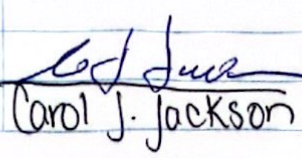 Carol J. Jackson